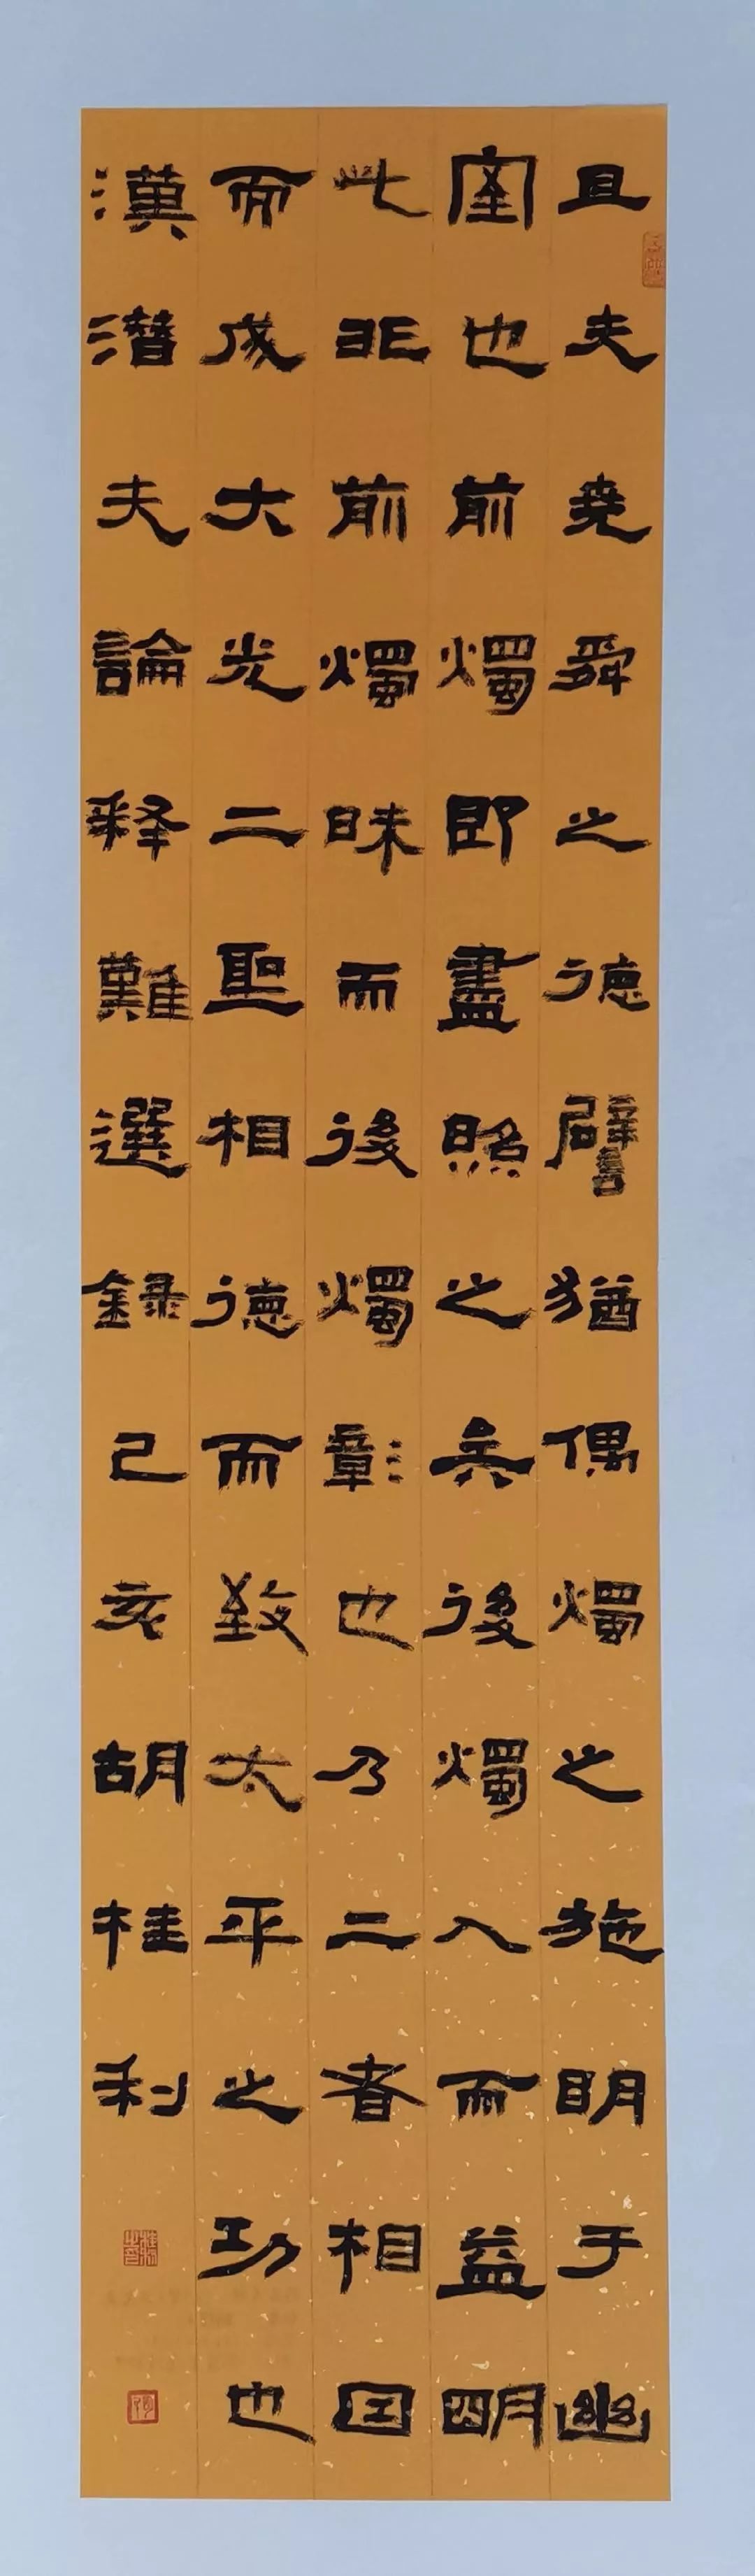 且夫堯舜之德譬猶偶燭之施明于幽
室也前燭即盡照之矣後燭入而益明
此非前燭昧而後燭彰也乃二者相因
而成大光二聖相德而致太平之功也
漢潛夫論释難選録己亥胡桂利